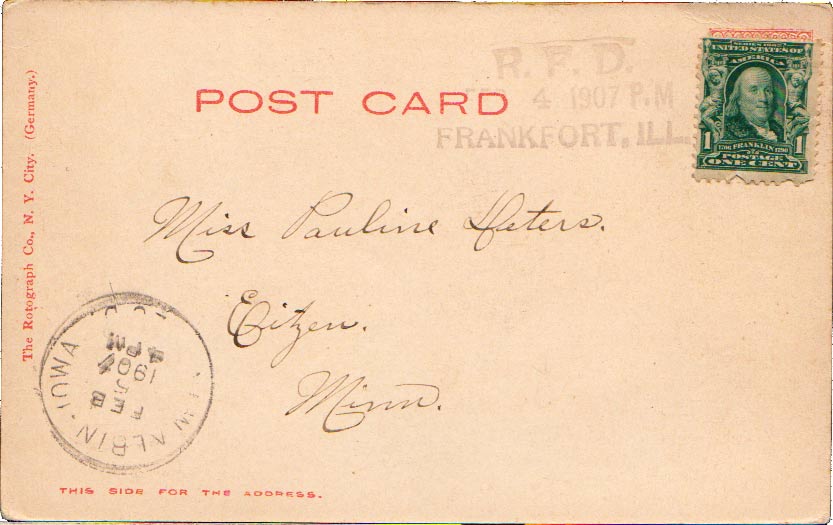 R. F. D.
4 1907 P.M
FRANKFORT, ILL.
POST CARD
SERIES 1902
UNITED STATES OF
AMERICA
1 1706 FRANKLIN 1790 1
POSTAGE
ONE CENT
The Rotograph Co., N. Y. City. (Germany.)
Miss Pauline Deters.
Eitzen.
Minn.
ALBIN. IOWA
FEB
5
1907
4 PM
THIS SIDE FOR THE ADDRESS.